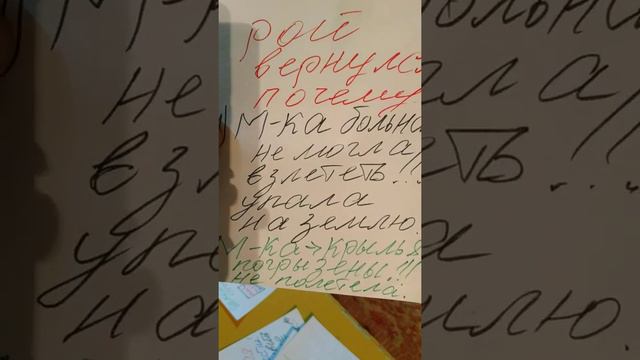 рой
вернулся
почему
1) М-ка больна
не могла
взлететь...!!
упала
на землю.
М-ка → крылья
погрызены!!!
не полетела.